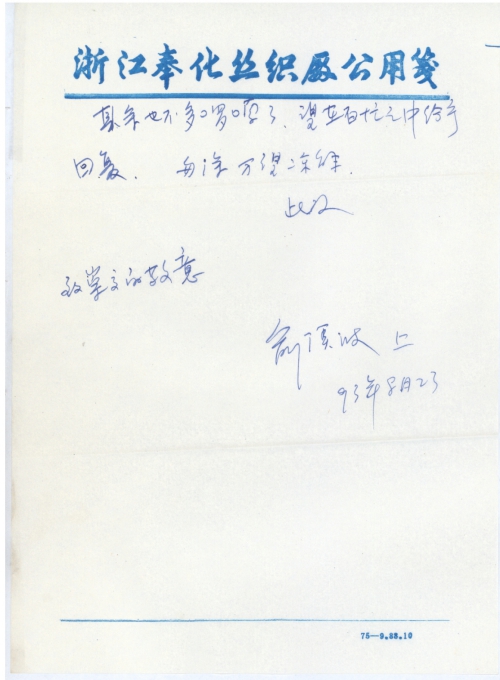 浙江奉化丝织厂公用笺
其余也不多啰嗦了，望在百忙之中给予
回复。 万望谅解。
此致
致崇高的敬意
俞 上
93年8月23
75—9.88.10